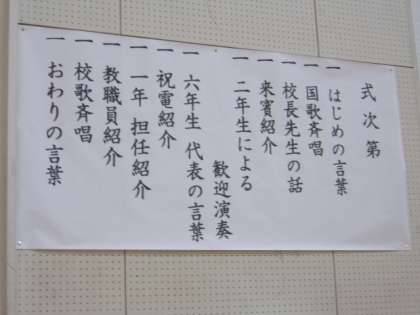 式次第
一 はじめの言葉
一 国歌斉唱
一 校長先生の話
一 来賓紹介
一 二年生による
歓迎演奏
一 六年生 代表の言葉
一 祝電紹介
一 一年 担任紹介
一 教職員紹介
一 校歌斉唱
一 おわりの言葉